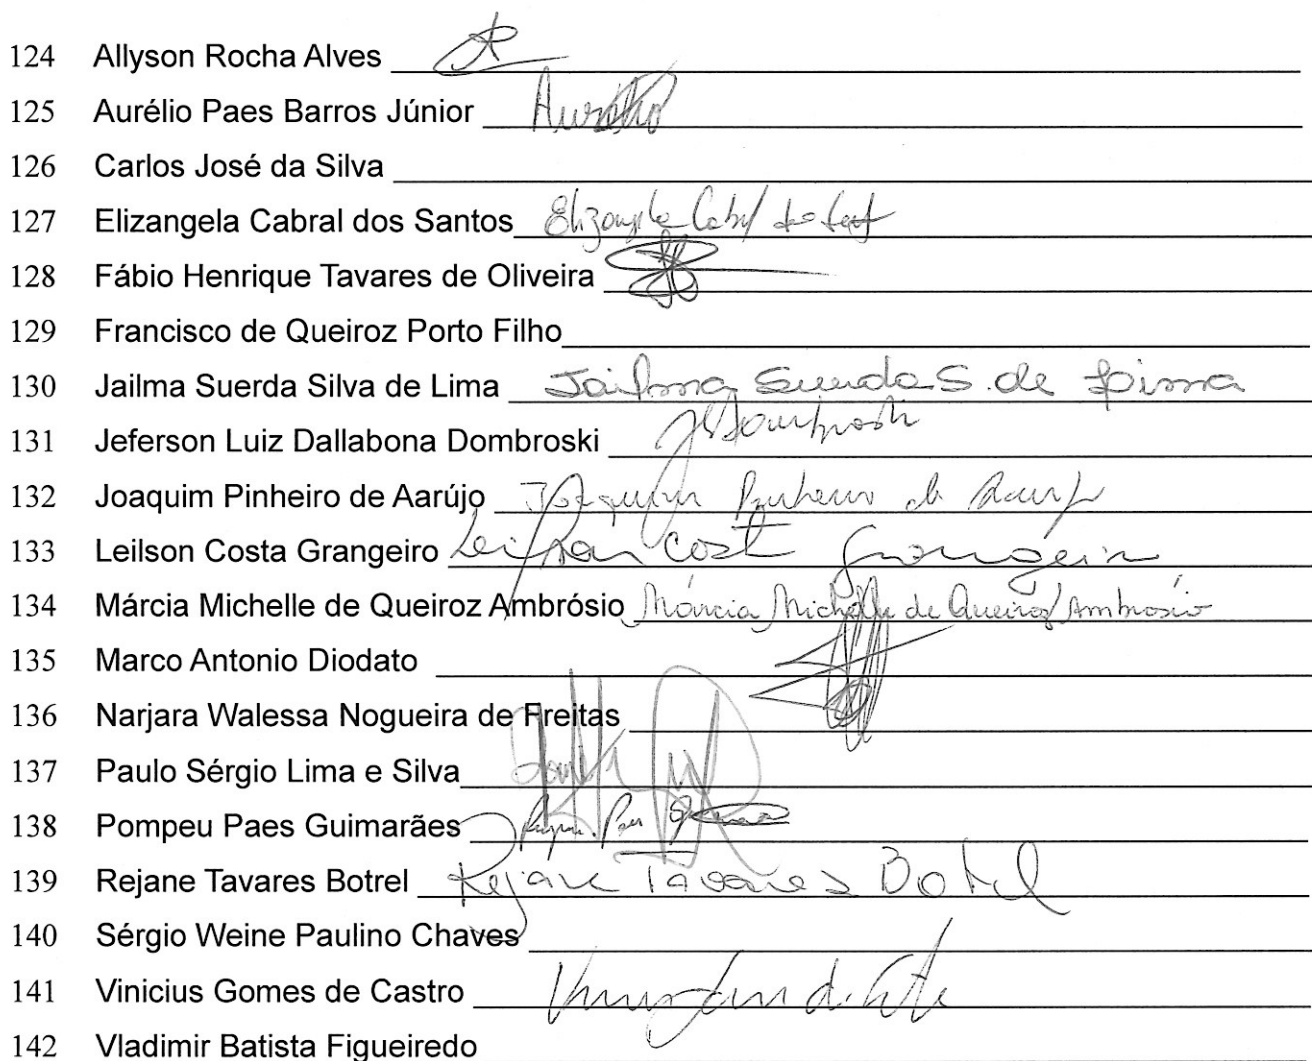 124 Allyson Rocha Alves
125 Aurélio Paes Barros Júnior Aurélio
126 Carlos José da Silva
127 Elizangela Cabral dos Santos Elizangela Cabral dos Santos
128 Fábio Henrique Tavares de Oliveira
129 Francisco de Queiroz Porto Filho
130 Jailma Suerda Silva de Lima Jailma Suerda S. de Lima
131 Jeferson Luiz Dallabona Dombroski JDombroski
132 Joaquim Pinheiro de Aarújo Joaquim Pinheiro de Araujo
133 Leilson Costa Grangeiro Leilson Costa Grangeiro
134 Márcia Michelle de Queiroz Ambrósio Márcia Michelle de Queiroz Ambrósio
135 Marco Antonio Diodato
136 Narjara Walessa Nogueira de Freitas
137 Paulo Sérgio Lima e Silva
138 Pompeu Paes Guimarães
139 Rejane Tavares Botrel Rejane Tavares Botrel
140 Sérgio Weine Paulino Chaves
141 Vinicius Gomes de Castro
142 Vladimir Batista Figueiredo